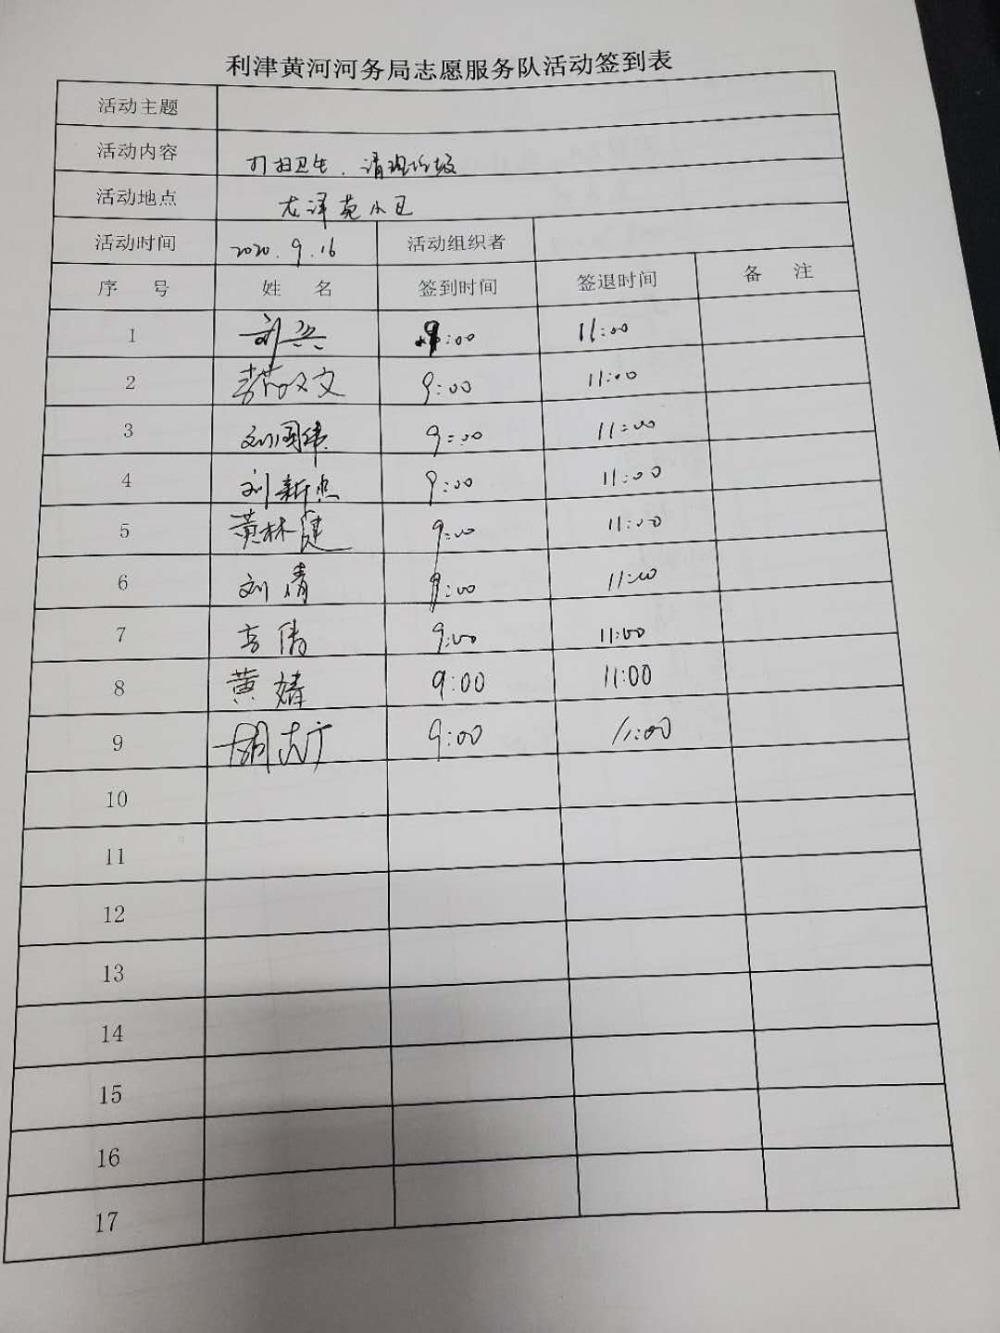 利津黄河河务局志愿服务队活动签到表
活动主题
活动内容 打扫卫生.清理垃圾
活动地点 龙泽苑小区
活动时间 2020.9.16 活动组织者
序 号 姓 名 签到时间 签退时间 备 注
1 刘兴 9:00 11:00
2 9:00 11:00
3 刘国伟 9:00 11:00
4 刘新杰 9:00 11:00
5 黄林健 9:00 11:00
6 刘倩 9:00 11:00
7 9:00 11:00
8 黄婧 9:00 11:00
9 9:00 11:00
10
11
12
13
14
15
16
17